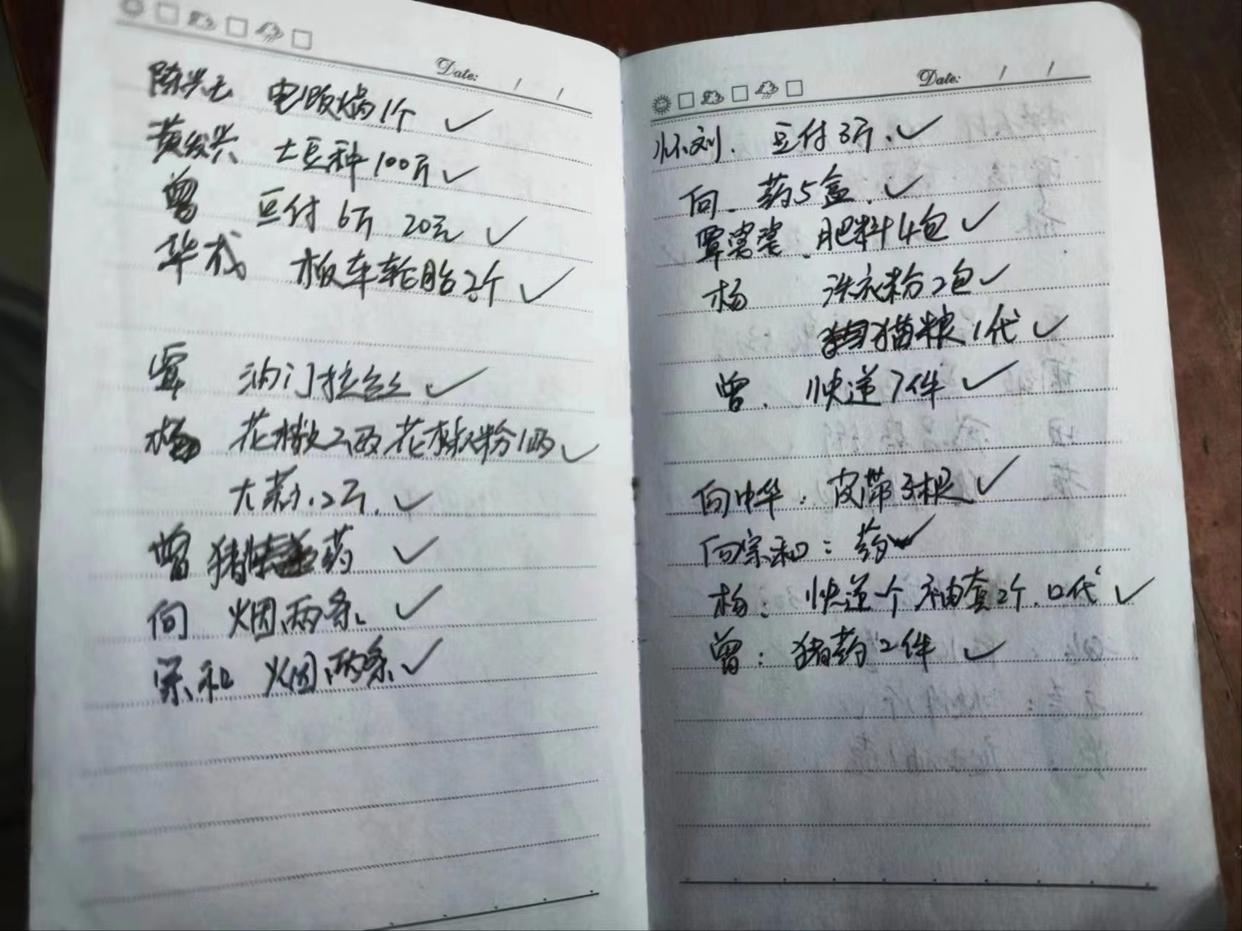 Date: / /
陈兴元 电饭锅1个 ✓
黄发兴 土豆种100斤 ✓
曾 豆付6斤 20元 ✓
华成 板车轮胎2个 ✓
覃 油门拉丝 ✓
杨 花椒2两花椒粉1两 ✓
大蒜.2斤. ✓
曾 猪药 ✓
向 烟两条. ✓
宗和 烟两条 ✓
Date: / /
怀刘. 豆付3斤. ✓
向. 药5盒. ✓
覃. 肥料4包 ✓
杨 洗衣粉2包 ✓
猫粮1代 ✓
曾. 快递7件 ✓
向中华. 皮带3根 ✓
向宗和: 药 ✓
杨: 快递一个 袖套2个. 口代 ✓
曾: 猪药2件 ✓